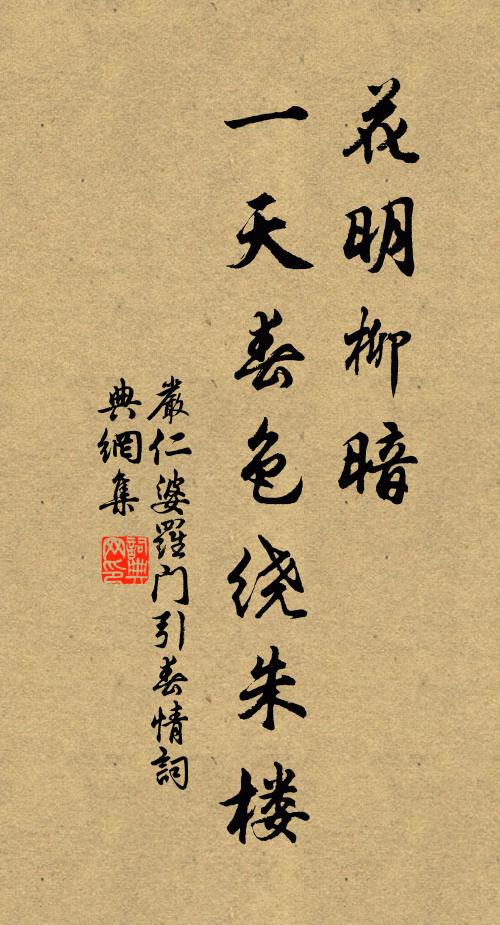 花明柳暗
一天春色绕朱楼
嚴仁婆羅门引春情詞
典網集
詞典
网印